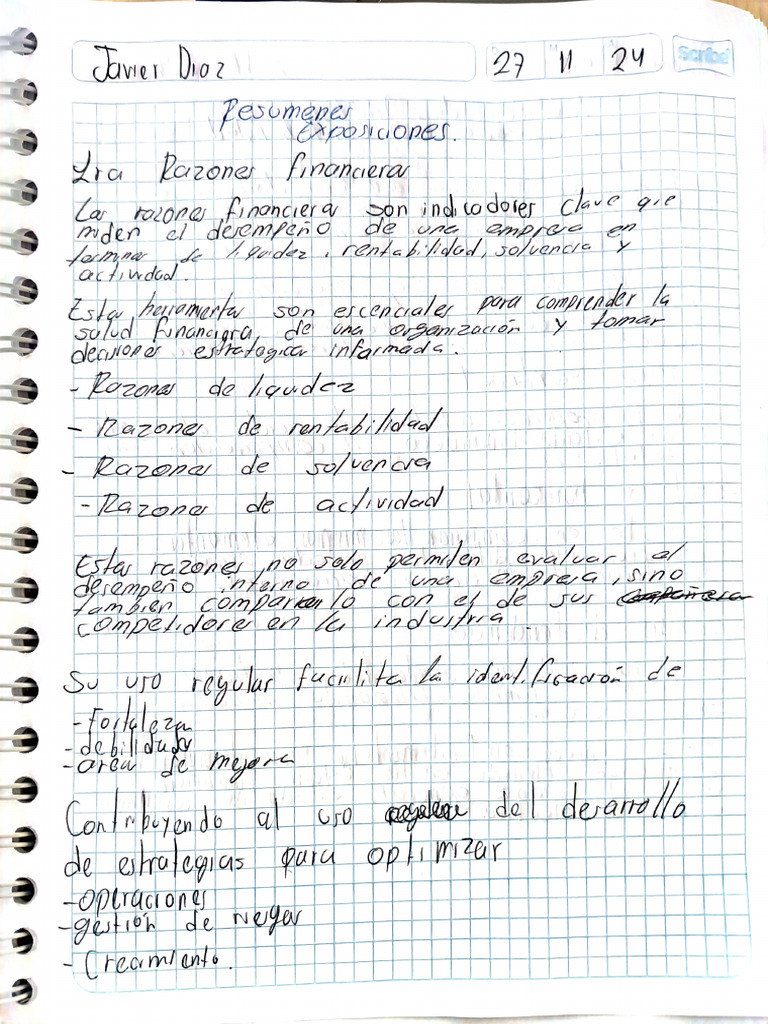 Javier Diaz
27 11 24
Scribe
Resumenes
Exposiciones.
1ra Razones financiera
Las razones financiera son indicadores clave que
miden el desempeño de una empresa en
terminos de liquidez, rentabilidad, solvencia y
actividad.
Estas herramientas son escenciales para comprender la
salud financiera de una organización y tomar
deciciones estrategica informada.
- Razones de liquidez
- Razones de rentabilidad
- Razones de solvencia
- Razones de actividad
Estas razones no solo permiten evaluar el
desempeño interno de una empresa, sino
tambien compararlo con el de sus
competidores en la industria.
Su uso regular facilita la identificación de
- fortaleza
- debilidad
- area de mejora
Contribuyendo al uso del desarrollo
de estrategias para optimizar
- operaciones
- gestión de
- Creamiento.